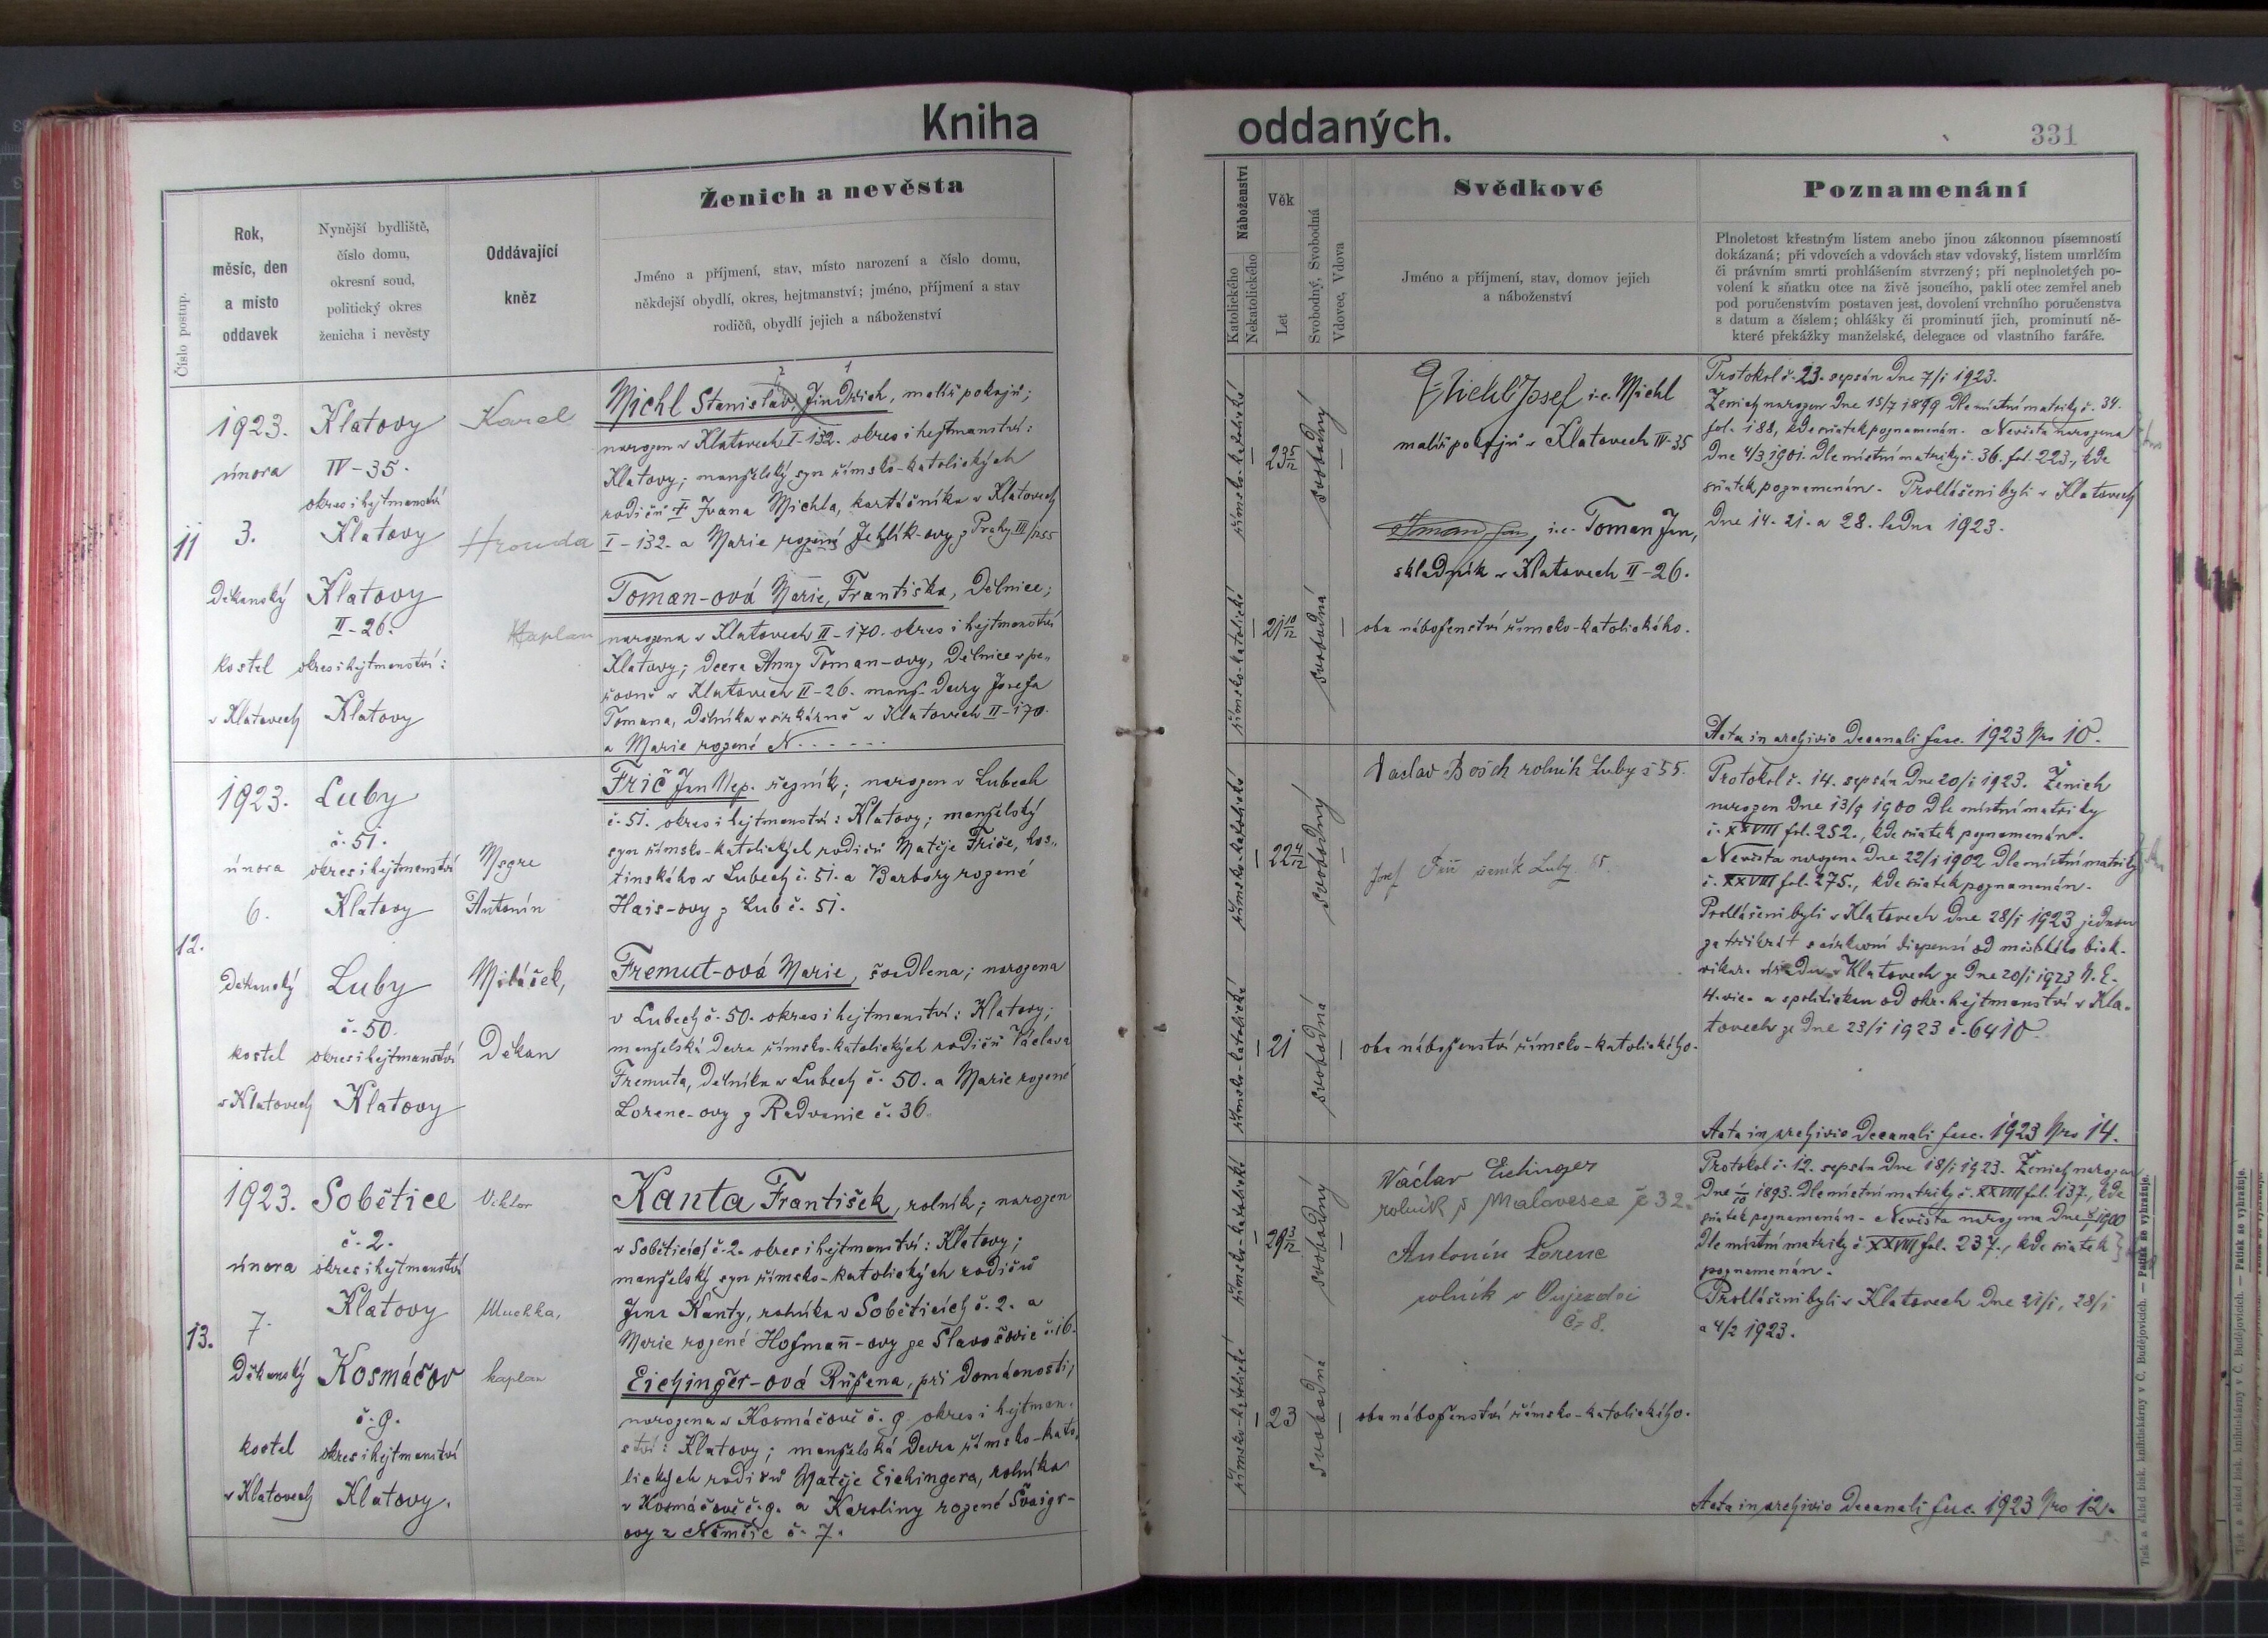 Kniha
oddaných.
331
Číslo postup.
Rok,
měsíc, den
a místo
oddavek
Nynější bydliště,
číslo domu,
okresní soud,
politický okres
ženicha i nevěsty
Oddávající
kněz
Ženich a nevěsta
Jméno a příjmení, stav, místo narození a číslo domu,
někdejší obydlí, okres, hejtmanství; jméno, příjmení a stav
rodičů, obydlí jejich a náboženství
Náboženství
Katolického
Nekatolického
Věk
Let
Svobodný, Svobodná
Vdovec, Vdova
Svědkové
Jméno a příjmení, stav, domov jejich
a náboženství
Poznamenání
Plnoletost křestným listem anebo jinou zákonnou písemností
dokázaná; při vdovcích a vdovách stav vdovský, listem úmrlčím
či právním smrti prohlášením stvrzený; při neplnoletých po-
volení k sňatku otce na živě jsoucího, pakli otec zemřel aneb
pod poručenstvím postaven jest, dovolení vrchního poručenstva
s datum a číslem; ohlášky či prominutí jich, prominutí ně-
které překážky manželské, delegace od vlastního faráře.
11
1923.
února
3.
Děkanský
kostel
v Klatovech
Klatovy
IV-35.
okres i hejtmanství
Klatovy
Klatovy
II-26.
okres i hejtmanství:
Klatovy
Karel
Hrouda
Kaplan
2 1
Michl Stanislav, Jindřich, malíř pokojů;
narozen v Klatovech I-132. okres i hejtmanství:
Klatovy; manželský syn římsko-katolických
rodičů † Ivana Michla, kartáčníka v Klatovech
I-132. a Marie rozené Jehlík-ovy z Prahy III/1255
Toman-ová Marie, Františka, dělnice;
narozena v Klatovech II-170. okres i hejtmanství
Klatovy; dcera Anny Toman-ovy, dělnice v pe„
řovně v Klatovech II-26. manž. dcery Josefa
Tomana, dělníka v sirkárně v Klatovech II-170.
a Marie rozené N......
římsko-katolické
23 5/12
svobodný
římsko-katolické
21 10/12
svobodná
Michl Josef i.e. Michl
malíř pokojů v Klatovech IV-35
Toman Jan, i.e. Toman Jan,
skladník v Klatovech II-26.
oba náboženství římsko-katolického.
Protokol č. 23. sepsán dne 7/I 1923.
Ženich narozen dne 15/7 1899 dle místní matriky č. 34.
fol. 188, kde sňatek poznamenán. Nevěsta narozena
dne 4/3 1901. dle místní matriky č. 36. fol. 223., kde
sňatek poznamenán. Prohlášeni byli v Klatovech
dne 14. 21. a 28. ledna 1923.
Acta in archivio decanali fasc. 1923 Nro 10.
12.
1923.
února
6.
Děkanský
kostel
v Klatovech
Luby
č. 51.
okres i hejtmanství
Klatovy
Luby
č. 50.
okres i hejtmanství
Klatovy
Msgre
Antonín
Miláček,
Děkan
Frič Jan Nep. řezník; narozen v Lubech
č. 51. okres i hejtmanství: Klatovy; manželský
syn římsko-katolických rodičů Matěje Friče, hos„
tinského v Lubech č. 51. a Barbory rozené
Hais-ovy z Lub č. 51.
Fremut-ová Marie, švadlena; narozena
v Lubech č. 50. okres i hejtmanství: Klatovy;
manželská dcera římsko-katolických rodičů Václava
Fremuta, dělníka v Lubech č. 50. a Marie rozené
Lorenc-ovy z Radvanic č. 36.
římsko-katolické
22 4/12
svobodný
římsko-katolické
21
svobodná
Václav Bosch rolník Luby č 55.
Josef Frič Luby
oba náboženství římsko-katolického.
Protokol č. 14. sepsán dne 20/I 1923. Ženich
narozen dne 13/9 1900 dle místní matriky
č. XXVIII fol. 252., kde sňatek poznamenán.
Nevěsta narozena dne 22/I 1902 dle místní matriky
č. XXVIII fol. 275., kde sňatek poznamenán.
Prohlášeni byli v Klatovech dne 28/I 1923 jednou
za třikrát s církevní dispensí od místního bisk.
vikar. úřadu v Klatovech ze dne 20/I 1923 N. E.
4. vic. a s politickou od okr. hejtmanství v Kla-
tovech ze dne 23/I 1923 č. 6410.
Acta in archivio decanali fasc. 1923 Nro 14.
13.
1923.
února
7.
Děkanský
kostel
v Klatovech
Sobětice
č. 2.
okres i hejtmanství
Klatovy
Kosmáčov
č. 9.
okres i hejtmanství
Klatovy.
Viktor
Muchka,
kaplan
Kanta František, rolník; narozen
v Soběticích č. 2. okres i hejtmanství: Klatovy;
manželský syn římsko-katolických rodičů
Jana Kanty, rolníka v Soběticích č. 2. a
Marie rozené Hofman̄-ovy ze Slavošovic č. 16.
Eichinger-ová Růžena, při domácnosti;
narozena v Kosmáčově č. 9. okres i hejtman-
ství: Klatovy; manželská dcera římsko-kato„
lických rodičů Matěje Eichingera, rolníka
v Kosmáčově č. 9. a Karoliny rozené Švaigr-
ovy z Němčic č. 7.
římsko-katolické
29 3/12
svobodný
římsko-katolické
23
svobodná
Václav Eichinger
rolník z Malavesce č 32.
Antonín Lorenc
rolník v Oujezdci
č. 8.
oba náboženství římsko-katolického.
Protokol č. 12. sepsán dne 18/I 1923. Ženich narozen
dne 1/10 1893. dle místní matriky č. XXVIII fol. 137., kde
sňatek poznamenán. Nevěsta narozena dne 1900
dle místní matriky č. XXVIII fol. 237., kde sňatek
poznamenán.
Prohlášeni byli v Klatovech dne 21/I, 28/I
a 4/2 1923.
Acta in archivio decanali fasc. 1923 Nro 12.
Tisk a sklad bisk. knihtiskárny v Č. Budějovicích. — Patisk se vyhražuje.